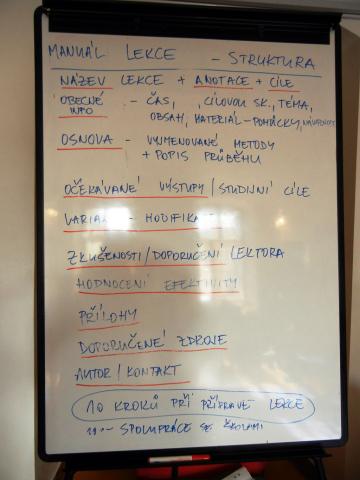 MANUÁL LEKCE - STRUKTURA
NÁZEV LEKCE + ANOTACE + CÍLE
OBECNÉ INFO - ČAS, CÍLOVOU SK., TÉMA,
OBSAH, MATERIÁL-POMŮCKY,
OSNOVA - VYJMENOVANÉ METODY
+ POPIS PRŮBĚHU
OČEKÁVANÉ VÝSTUPY / STUDIJNÍ CÍLE
- MODIFIKA
ZKUŠENOSTI/DOPORUČENÍ LEKTORA
HODNOCENÍ EFEKTIVITY
PŘÍLOHY
DOPORUČENÉ ZDROJE
AUTOR / KONTAKT
10 KROKŮ PŘI PŘÍPRAVĚ LEKCE
- SPOLUPRÁCE SE ŠKOLAMI